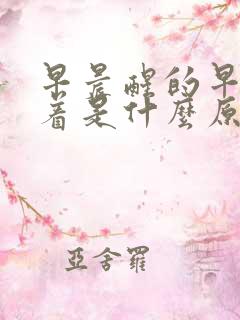 早晨醒的早
着是什麼原
亞舍羅